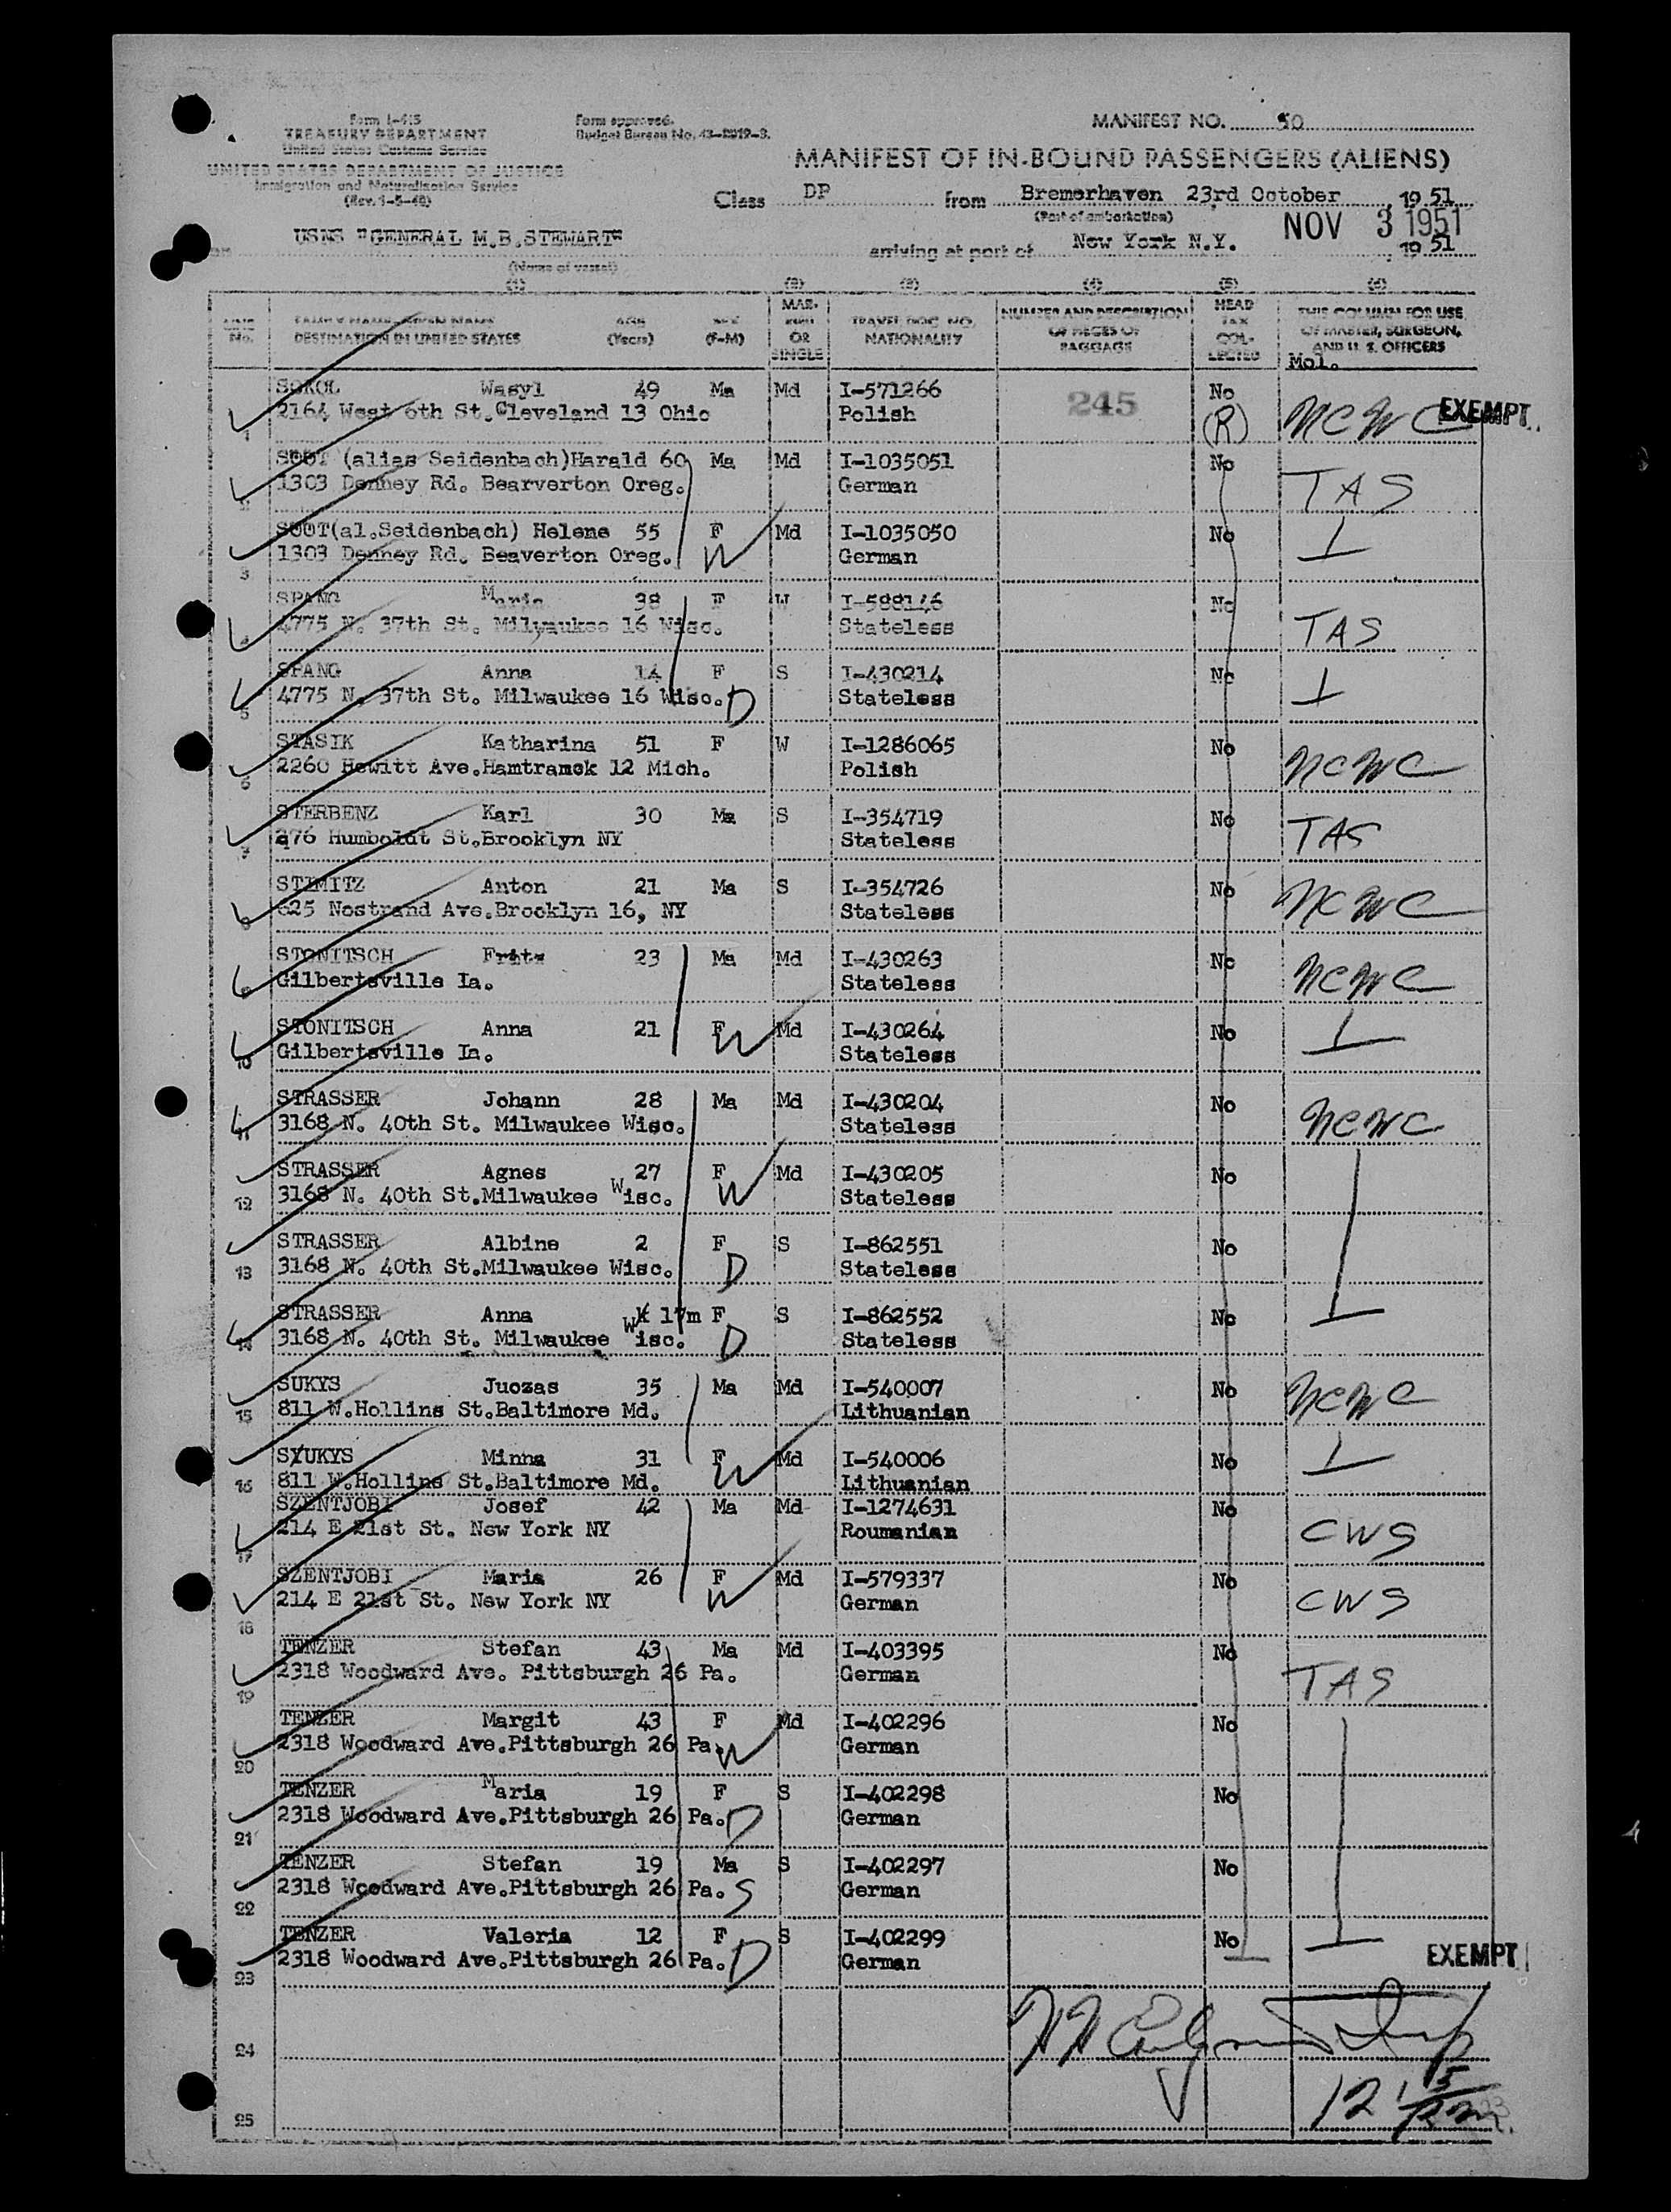 Form I-415
TREASURY DEPARTMENT
United States Customs Service
UNITED STATES DEPARTMENT OF JUSTICE
Immigration and Naturalization Service
(Rev. 1-5-48)
Form approved.
Budget Bureau No. 43-R019-3.
MANIFEST NO. 50
MANIFEST OF IN-BOUND PASSENGERS (ALIENS)
Class DP from Bremerhaven 23rd October, 19 51
(Port of embarkation)
USNS "GENERAL M.B.STEWART"
(Name of vessel)
arriving at port of New York N.Y. NOV 3 1951, 19 51
(1) (2) (3) (4) (5) (6)
LINE No.
FAMILY NAME—GIVEN NAME AGE SEX
DESTINATION IN UNITED STATES (Years) (F-M)
MAR-RIED OR SINGLE
TRAVEL DOC. NO. NATIONALITY
NUMBER AND DESCRIPTION OF PIECES OF BAGGAGE
HEAD TAX COL-LECTED
THIS COLUMN FOR USE OF MASTER, SURGEON, AND U. S. OFFICERS
Mol.
1 SOKOL Wasyl 49 Ma Md I-571266 245 No NCWC EXEMPT
2164 West 6th St.Cleveland 13 Ohio Polish (R)
2 SOOT (alias Seidenbach)Harald 60 Ma Md I-1035051 No TAS
1303 Denney Rd. Bearverton Oreg. German
3 SOOT(al.Seidenbach) Helene 55 F W Md I-1035050 No
1303 Denney Rd. Beaverton Oreg. German
4 SPANG Maria 38 F W I-588146 No TAS
4775 N. 37th St. Milwaukee 16 Wisc. Stateless
5 SPANG Anna 14 F S I-430214 No
4775 N. 37th St. Milwaukee 16 Wisc. D Stateless
6 STASIK Katharina 51 F W I-1286065 No NCWC
2260 Hewitt Ave.Hamtramck 12 Mich. Polish
7 STERBENZ Karl 30 Ma S I-354719 No TAS
276 Humboldt St.Brooklyn NY Stateless
8 STIMITZ Anton 21 Ma S I-354726 No NCWC
625 Nostrand Ave.Brooklyn 16, NY Stateless
9 STONITSCH Fritz 23 Ma Md I-430263 No NCWC
Gilbertsville Ia. Stateless
10 STONITSCH Anna 21 F W Md I-430264 No
Gilbertsville Ia. Stateless
11 STRASSER Johann 28 Ma Md I-430204 No NCWC
3168 N. 40th St. Milwaukee Wisc. Stateless
12 STRASSER Agnes 27 F W Md I-430205 No
3168 N. 40th St.Milwaukee Wisc. Stateless
13 STRASSER Albine 2 F S I-862551 No
3168 N. 40th St.Milwaukee Wisc. D Stateless
14 STRASSER Anna 17m F S I-862552 No
3168 N. 40th St. Milwaukee Wisc. D Stateless
15 SUKYS Juozas 35 Ma Md I-540007 No NCWC
811 W.Hollins St.Baltimore Md. Lithuanian
16 SYUKYS Minna 31 F W Md I-540006 No
811 W.Hollins St.Baltimore Md. Lithuanian
17 SZENTJOBI Josef 42 Ma Md I-1274631 No CWS
214 E 21st St. New York NY Roumanian
18 SZENTJOBI Maria 26 F W Md I-579337 No CWS
214 E 21st St. New York NY German
19 TENZER Stefan 43 Ma Md I-403395 No TAS
2318 Woodward Ave. Pittsburgh 26 Pa. German
20 TENZER Margit 43 F Md I-402296 No
2318 Woodward Ave.Pittsburgh 26 Pa. W German
21 TENZER Maria 19 F S I-402298 No
2318 Woodward Ave.Pittsburgh 26 Pa. D German
22 TENZER Stefan 19 Ma S I-402297 No
2318 Woodward Ave.Pittsburgh 26 Pa. S German
23 TENZER Valeria 12 F S I-402299 No EXEMPT
2318 Woodward Ave.Pittsburgh 26 Pa. D German
24
25
12 15